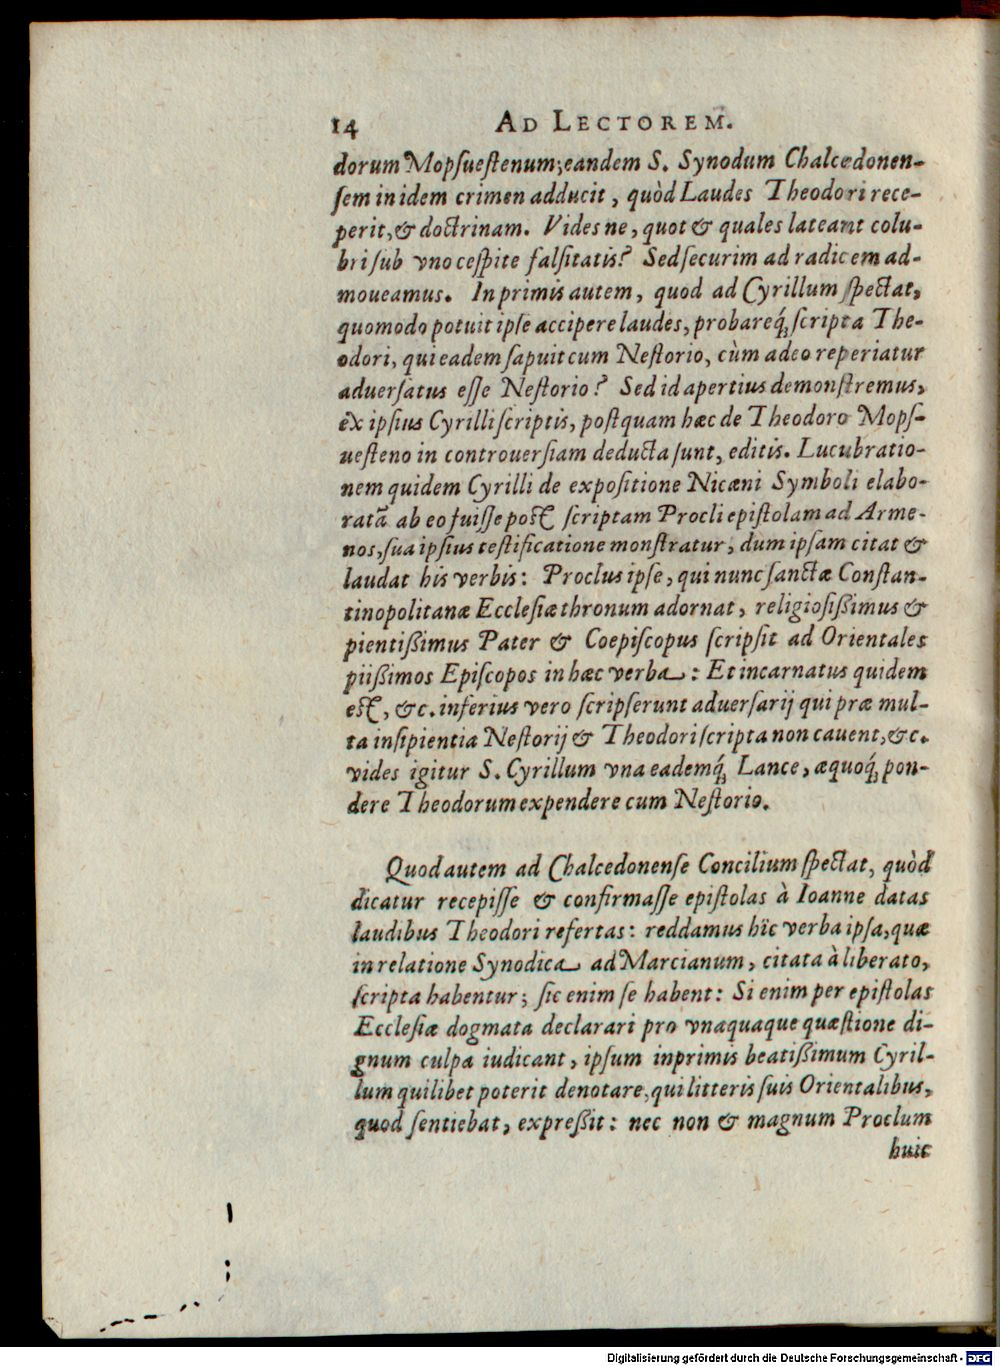 14 AD LECTOREM.
dorum Mopſueſtenum; eandem S. Synodum Chalcedonen-
ſem in idem crimen adducit, quòd Laudes Theodori rece-
perit, & doctrinam. Vides ne, quot & quales lateant colu-
bri ſub vno ceſpite falſitatis? Sed ſecurim ad radicem ad-
moueamus. In primis autem, quod ad Cyrillum ſpectat,
quomodo potuit ipſe accipere laudes, probareq́; ſcripta The-
odori, qui eadem ſapuit cum Neſtorio, cùm adeo reperiatur
aduerſatus eſſe Neſtorio? Sed id apertius demonſtremus,
èx ipſius Cyrilli ſcriptis, poſtquam hæc de Theodoro Mopſ-
ueſteno in controuerſiam deducta ſunt, editis. Lucubratio-
nem quidem Cyrilli de expoſitione Nicæni Symboli elabo-
ratã ab eo fuiſſe poſt ſcriptam Procli epiſtolam ad Arme-
nos, ſua ipſius teſtificatione monſtratur, dum ipſam citat &
laudat his verbis: Proclus ipſe, qui nunc ſanctæ Conſtan-
tinopolitanæ Eccleſiæ thronum adornat, religioſißimus &
pientißimus Pater & Coepiſcopus ſcripſit ad Orientales
piißimos Epiſcopos in hæc verba: Et incarnatus quidem
eſt, &c. inferius vero ſcripſerunt aduerſarij qui præ mul-
ta inſipientia Neſtorij & Theodori ſcripta non cauent, &c.
vides igitur S. Cyrillum vna eademq́; Lance, æquoq́; pon-
dere Theodorum expendere cum Neſtorio.
Quod autem ad Chalcedonenſe Concilium ſpectat, quòd
dicatur recepiſſe & confirmaſſe epiſtolas à Ioanne datas
laudibus Theodori refertas: reddamus hîc verba ipſa, quæ
in relatione Synodica ad Marcianum, citata à liberato,
ſcripta habentur; ſic enim ſe habent: Si enim per epiſtolas
Eccleſiæ dogmata declarari pro vnaquaque quæſtione di-
gnum culpa iudicant, ipſum inprimis beatißimum Cyril-
lum quilibet poterit denotare, qui litteris ſuis Orientalibus,
quod ſentiebat, expreßit: nec non & magnum Proclum
huic
Digitalisierung gefördert durch die Deutsche Forschungsgemeinschaft - DFG